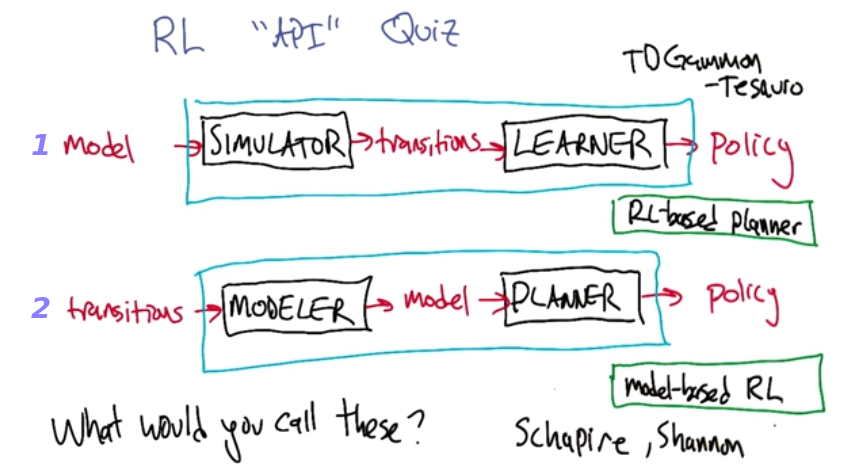 RL "API" Quiz
TD Gammon
-Tesauro
1 model SIMULATOR transitions LEARNER policy
RL-based planner
2 transitions MODELER model PLANNER policy
model-based RL
What would you call these?
Schapire, Shannon